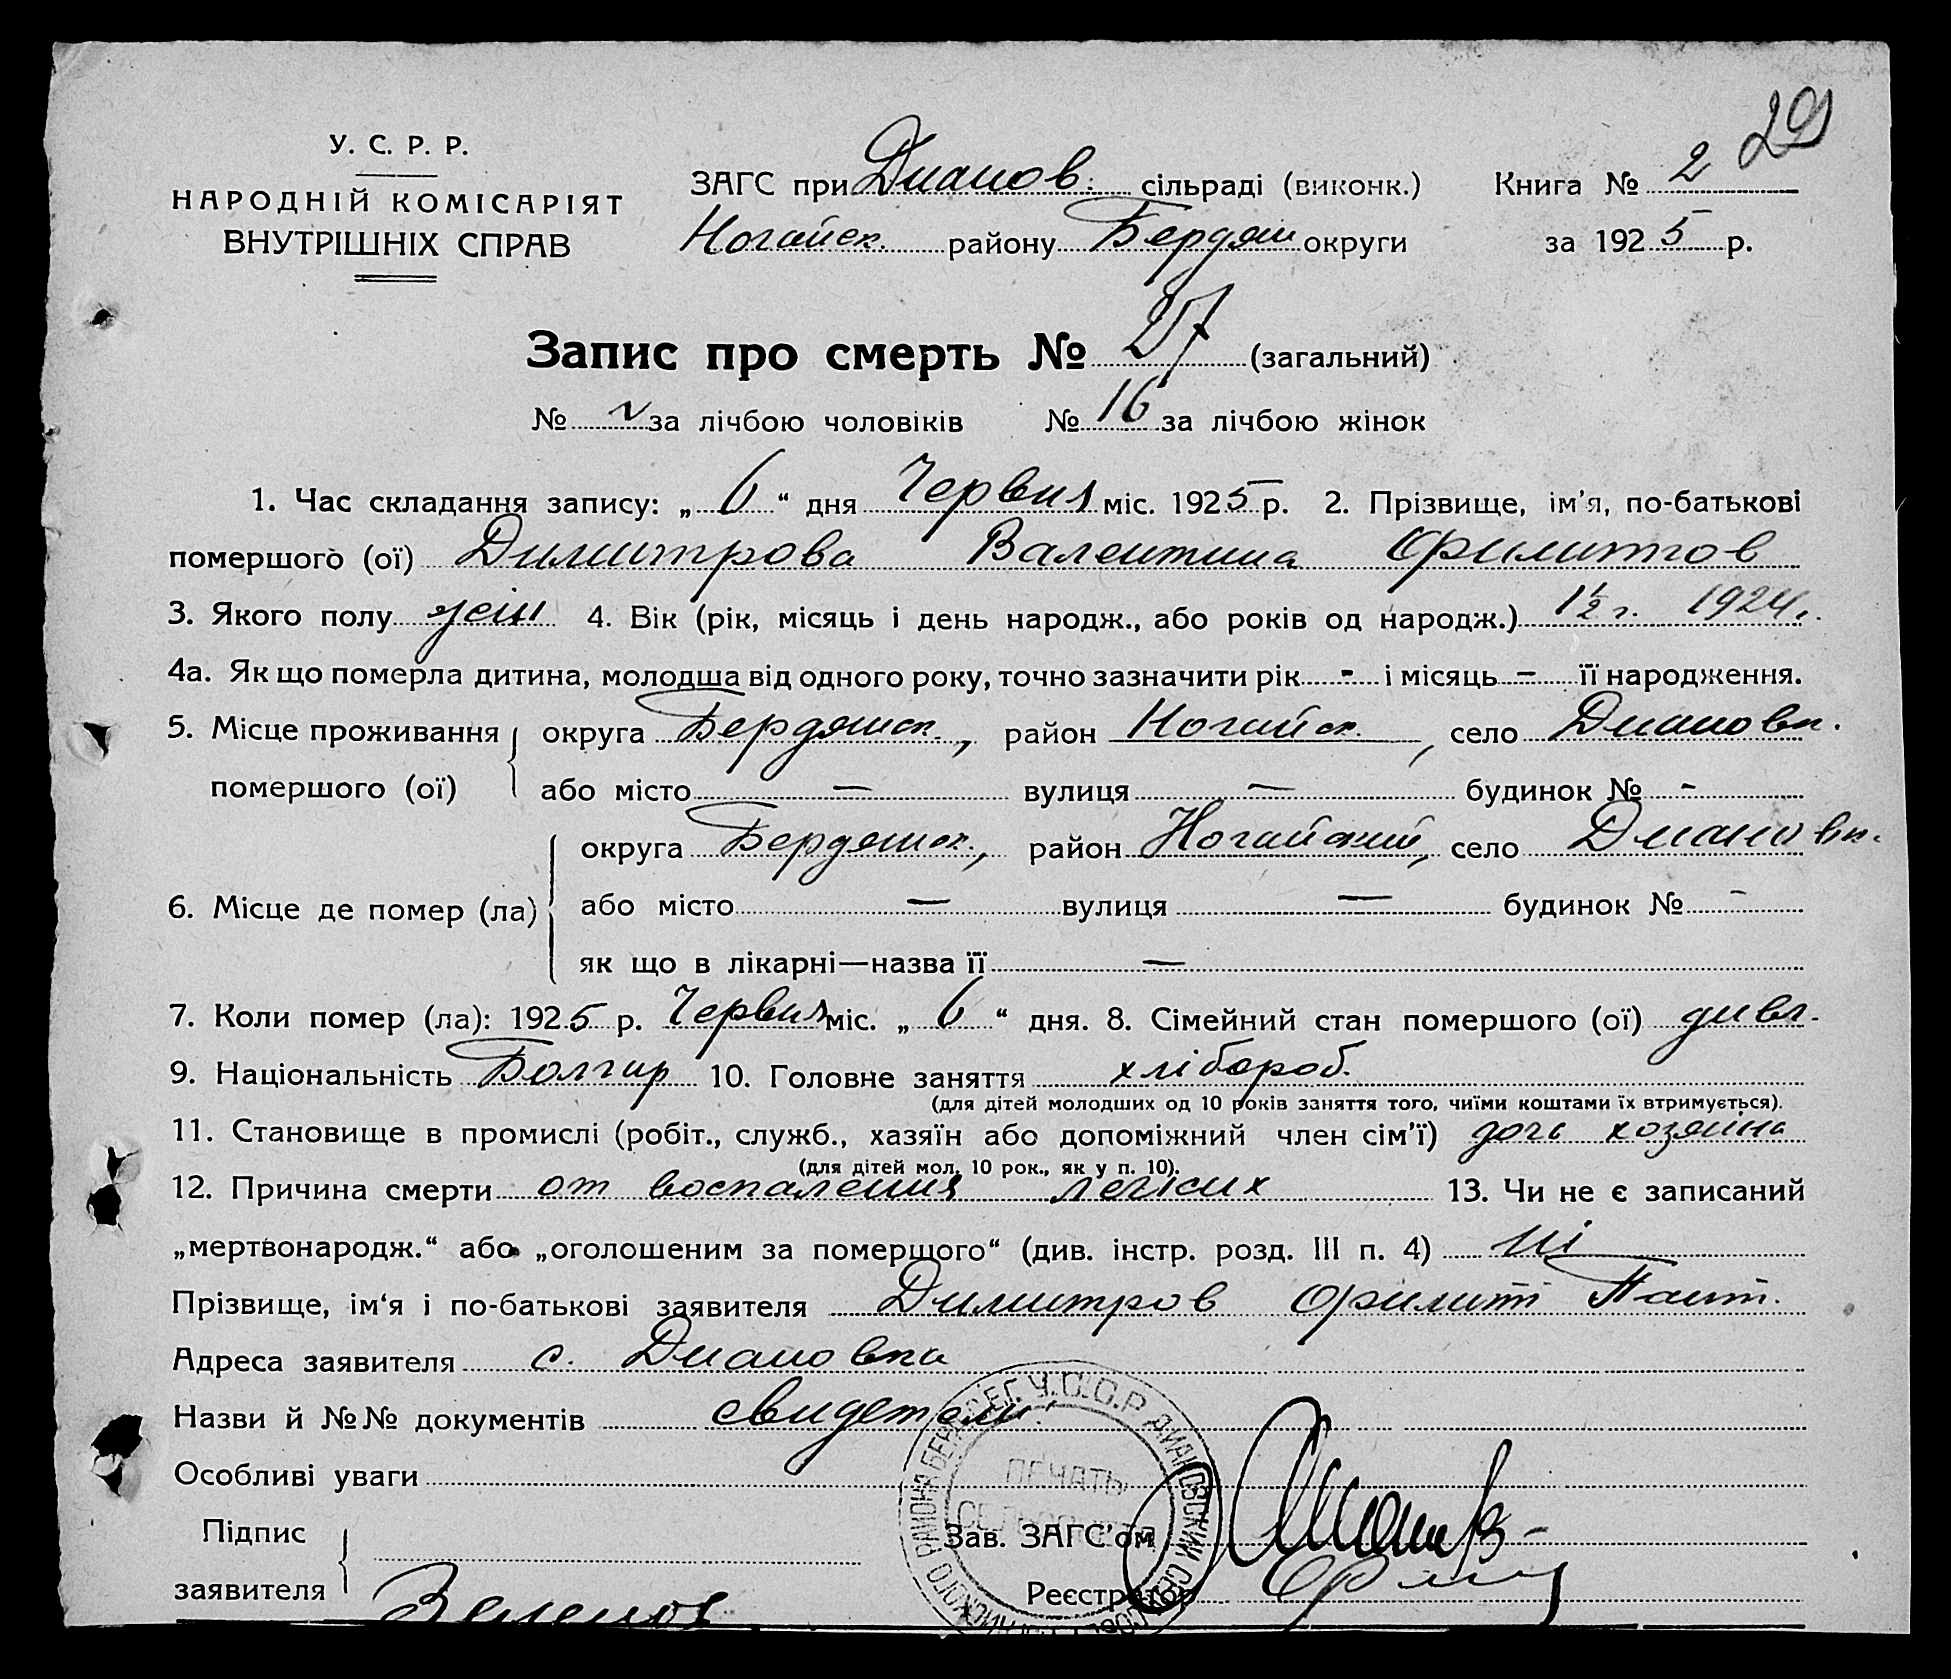 29
У. С. Р. Р.
НАРОДНІЙ КОМІСАРІЯТ
ВНУТРІШНІХ СПРАВ
ЗАГС при Дианов. сільраді (виконк.) Книга № 2
Ногайск. району Бердян округи за 1925 р.
Запис про смерть № 27 (загальний)
№ за лічбою чоловіків № 16 за лічбою жінок
1. Час складання запису: „ 6 “ дня Червня міс. 1925 р. 2. Прізвище, ім'я, по-батькові
помершого (ої) Димитрова Валентина Филиппов
3. Якого полу жін 4. Вік (рік, місяць і день народж., або років од народж.) 1½ г. 1924 г.
4а. Як що померла дитина, молодша від одного року, точно зазначити рік - і місяць — її народження.
5. Місце проживання округа Бердянск., район Ногайск., село Диановк.
помершого (ої) або місто — вулиця — будинок № -
округа Бердянск., район Ногайский, село Диановк.
6. Місце де помер (ла) або місто — вулиця — будинок № -
як що в лікарні—назва її —
7. Коли помер (ла): 1925 р. Червня міс. „ 6 “ дня. 8. Сімейний стан помершого (ої)
9. Національність Болгар 10. Головне заняття хлібороб.
(для дітей молодших од 10 років заняття того, чиїми коштами їх втримується).
11. Становище в промислі (робіт., служб., хазяїн або допоміжний член сім'ї) дочь хозяина
(для дітей мол. 10 рок., як у п. 10).
12. Причина смерти от воспаления легких 13. Чи не є записаний
„мертвонародж.“ або „оголошеним за померщого“ (див. інстр. розд. III п. 4) ні
Прізвище, ім‘я і по-батькові заявителя Димитров Филипп Пант.
Адреса заявителя с. Диановка
Назви й №№ документів свидетели
Особливі уваги
Підпис
заявителя
Зав. ЗАГС'ом
Реєстратор
ПЕЧАТЬ